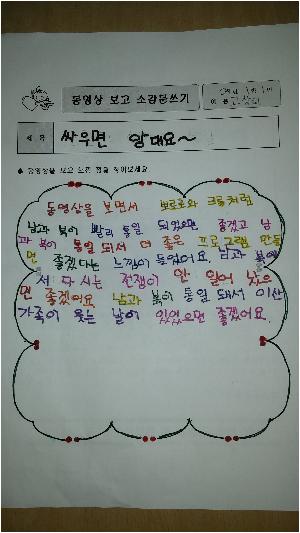 동영상 보고 소감문쓰기
제 목
싸우면 앙대요~
♣ 동영상을 보고 느낀 점을 적어보세요
동영상을 보면서 뽀로로와 크롱처럼
남과 북이 빨리 통일 되었으면 좋겠고 남
과 북이 통일 되서 더 좋은 프로그램 만들
면 좋겠다는 느낌이 들었어요. 남과 북에
서 다시는 전쟁이 안 일어 났으
면 좋겠어요. 남과 북이 통일 돼서 이산
가족이 웃는 날이 있었으면 좋겠어요.